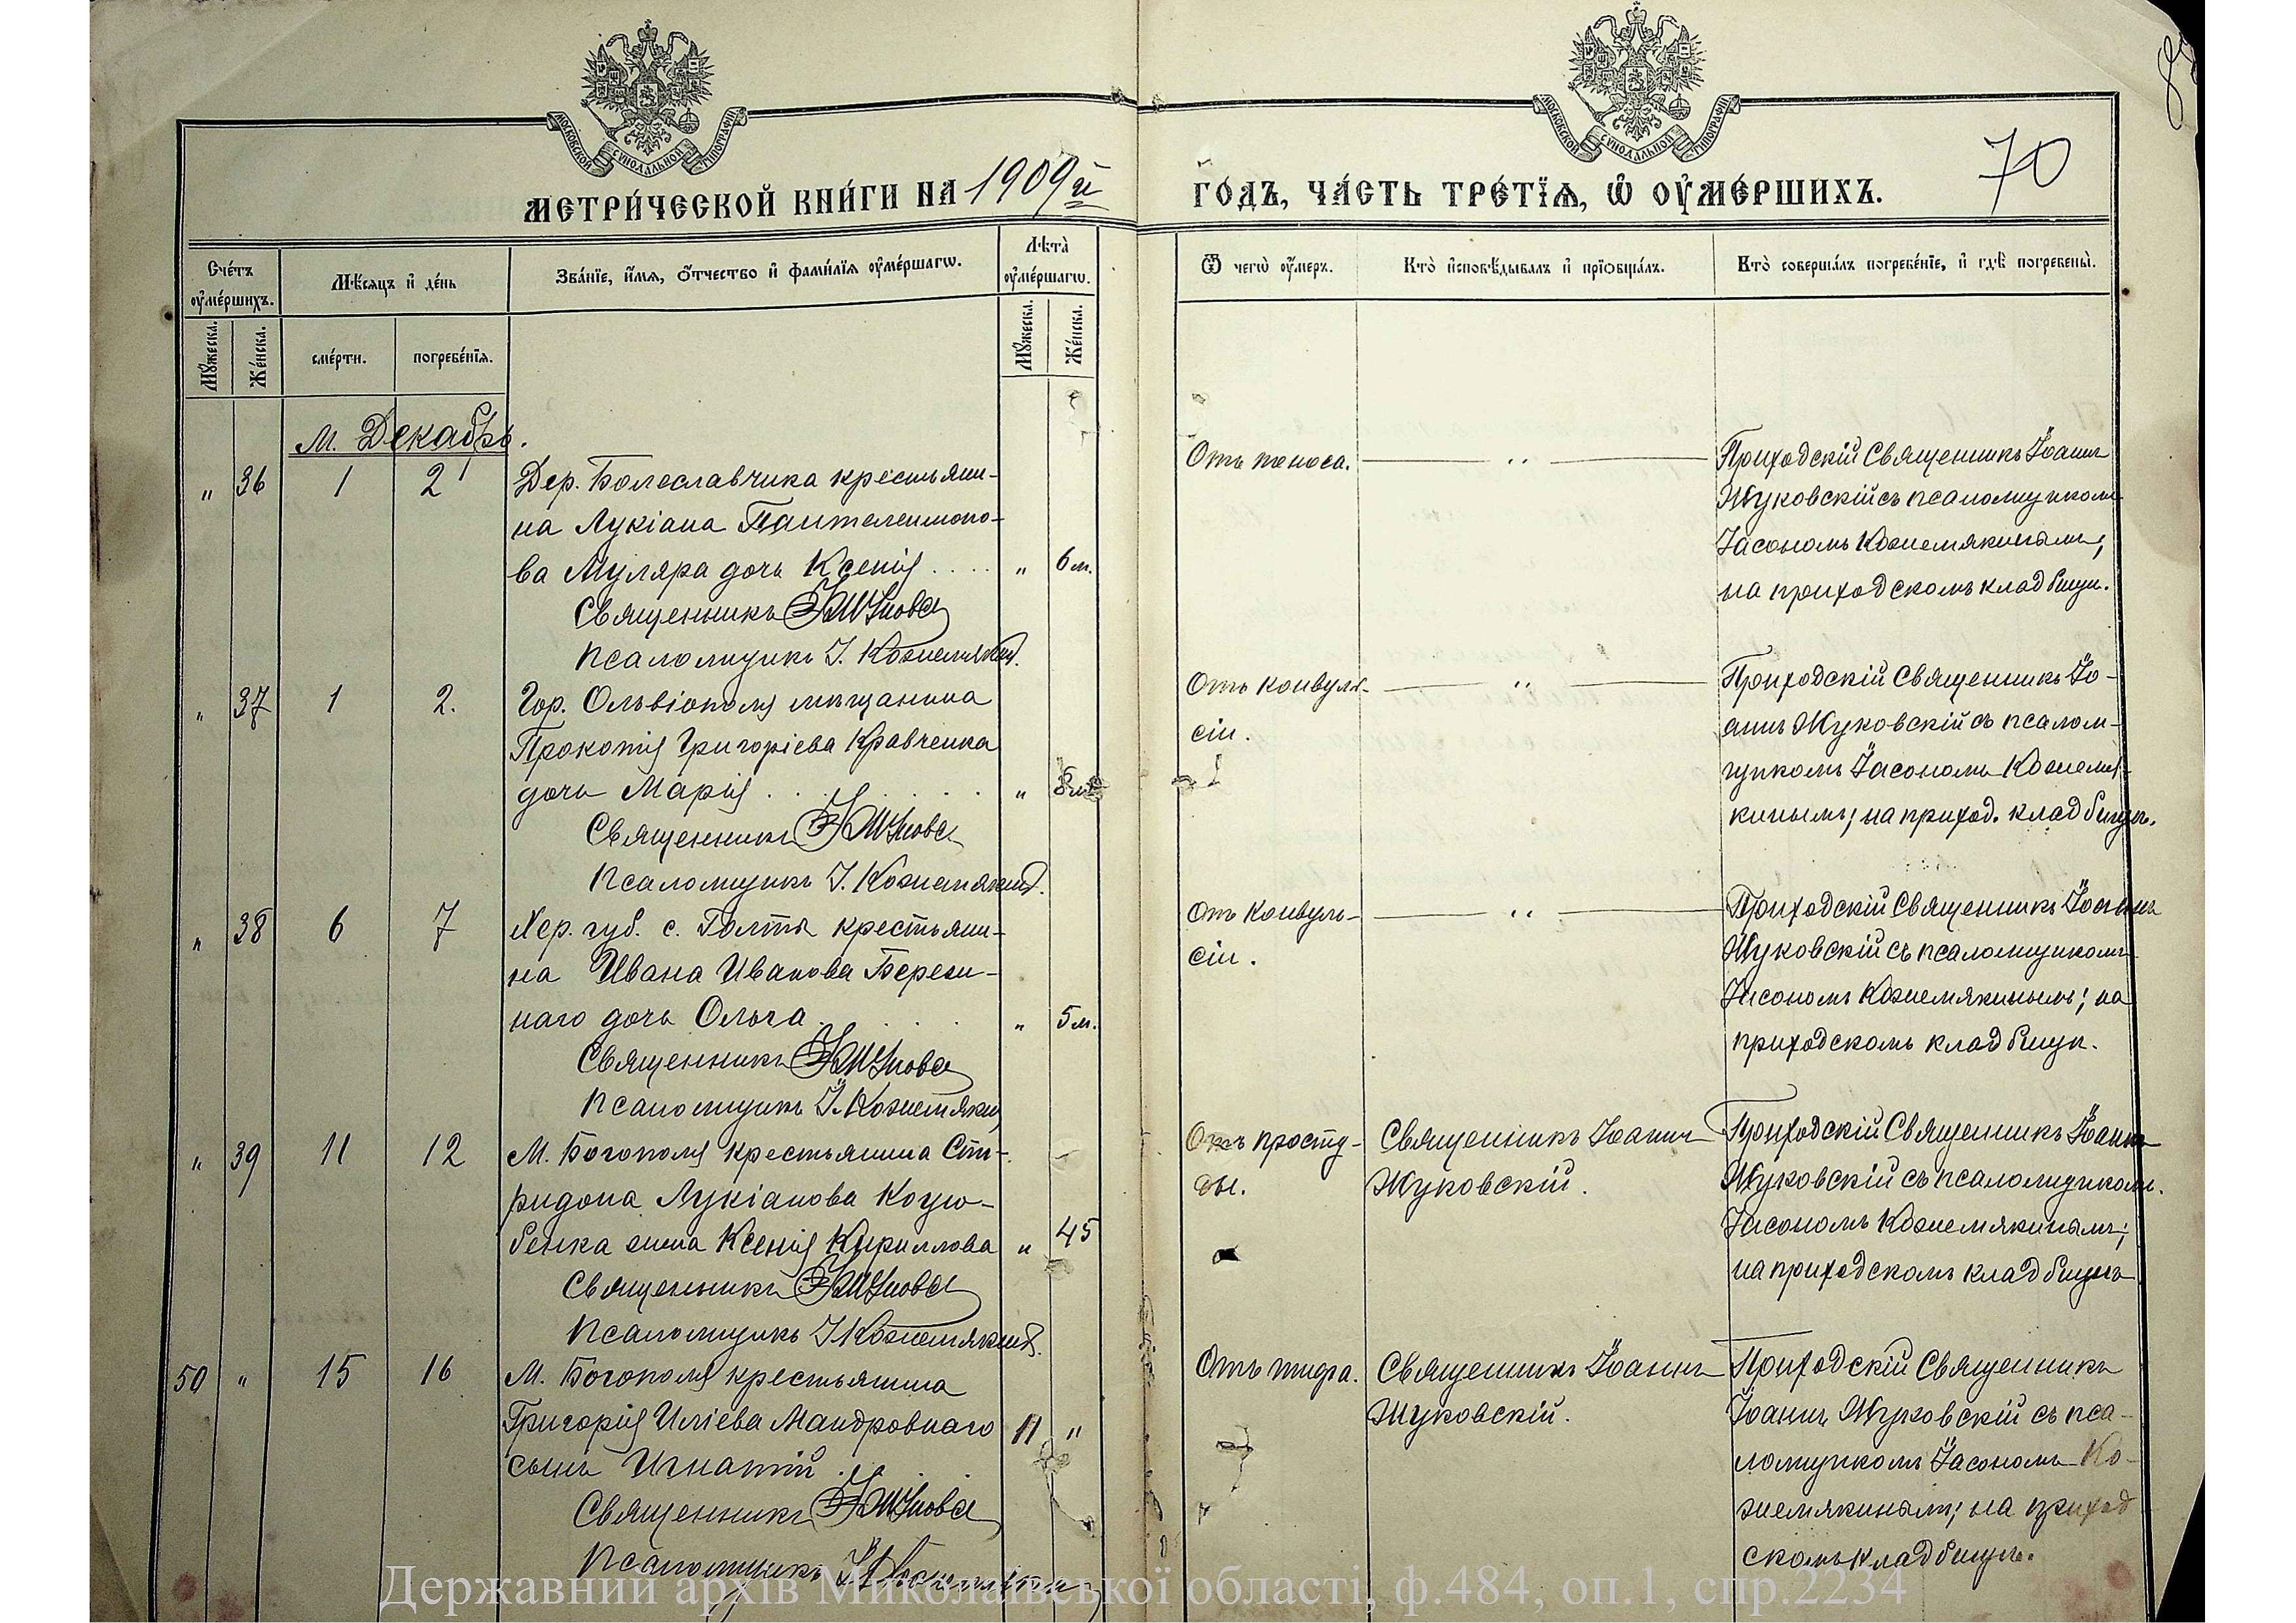 МОСКОВСКОЙ СѴНОДАЛЬНОЙ ТИПОГРАФІИ
МОСКОВСКОЙ СѴНОДАЛЬНОЙ ТИПОГРАФІИ
70
МЕТРИ́ЧЕСКОЙ КНИ́ГИ НА 1909й ГО́ДЪ, ЧА́СТЬ ТРЕ́ТЇѦ, Ѡ҆ ОУ҆МЕ́РШИХЪ.
Сче́тъ оу҆ме́ршихъ.
Мѣ́сяцъ и҆ де́нь
Зва́нїе, и҆́мя, ѻ҆́тчество и҆ фами́лїя оу҆ме́ршагѡ.
Лѣта̀ оу҆ме́ршагѡ.
Ѿ чегѡ̀ оу҆́меръ.
Кто̀ и҆сповѣ́дывалъ и҆ прїѡбща́лъ.
Кто̀ соверша́лъ погребе́нїе, и҆ гдѣ̀ погребены̀.
Му́жеска.
Же́нска.
сме́рти.
погребе́нїя.
Му́жеска.
Же́нска.
М. Декабрь.
" 36 1 2 Дер. Болеславчика крестьяни-
на Лукіана Пантелеимоно-
ва Муляра дочь Ксенія .... " 6 м.
Священникъ
Псаломщикъ І. Кожемякинъ.
Отъ поноса. — " —
Приходскій Священникъ Іоаннъ
Жуковскій съ псаломщикомъ
Іасономъ Кожемякинымъ;
на приходскомъ кладбищѣ.
" 37 1 2. Гор. Ольвіополя мѣщанина
Прокопія Григоріева Кравченка
дочь Марія . . . . . "
Священникъ
Псаломщикъ І. Кожемякинъ.
Отъ конвуль-
сіи.
— " —
Приходскій Священникъ Іо-
аннъ Жуковскій съ псалом-
щикомъ Іасономъ Кожемя-
кинымъ; на приход. кладбищѣ.
" 38 6 7 Хер. губ. с. Голты крестьяни-
на Ивана Иванова Берези-
наго дочь Ольга . . . . " 5 м.
Священникъ
Псаломщикъ І. Кожемякин
Отъ конвуль-
сіи.
— " —
Приходскій Священникъ Іоаннъ
Жуковскій съ псаломщикомъ
Іасономъ Кожемякинымъ; на
приходскомъ кладбищѣ.
" 39 11 12 М. Богополя крестьянина Спи-
ридона Лукіанова Коцю-
бенка жена Ксенія Кириллова " 45
Священникъ
Псаломщикъ І. Кожемякинъ.
Отъ просту-
ды.
Священникъ Іоаннъ
Жуковскій.
Приходскій Священникъ Іоаннъ
Жуковскій съ псаломщикомъ.
Іасономъ Кожемякинымъ;
на приходскомъ кладбищѣ
50 " 15 16 М. Богополя крестьянина
Григорія Иліева Мандровнаго 11 "
сынъ Игнатій . . .
Священникъ
Псаломщикъ
Отъ тифа.
Священникъ Іоаннъ
Жуковскій.
Приходскій Священникъ
Іоаннъ Жуковскій съ пса-
ломщикомъ Іасономъ Ко-
жемякинымъ; на приход
скомъ кладбищѣ.
Державний архів Миколаївської області, ф.484, оп.1, спр.2234